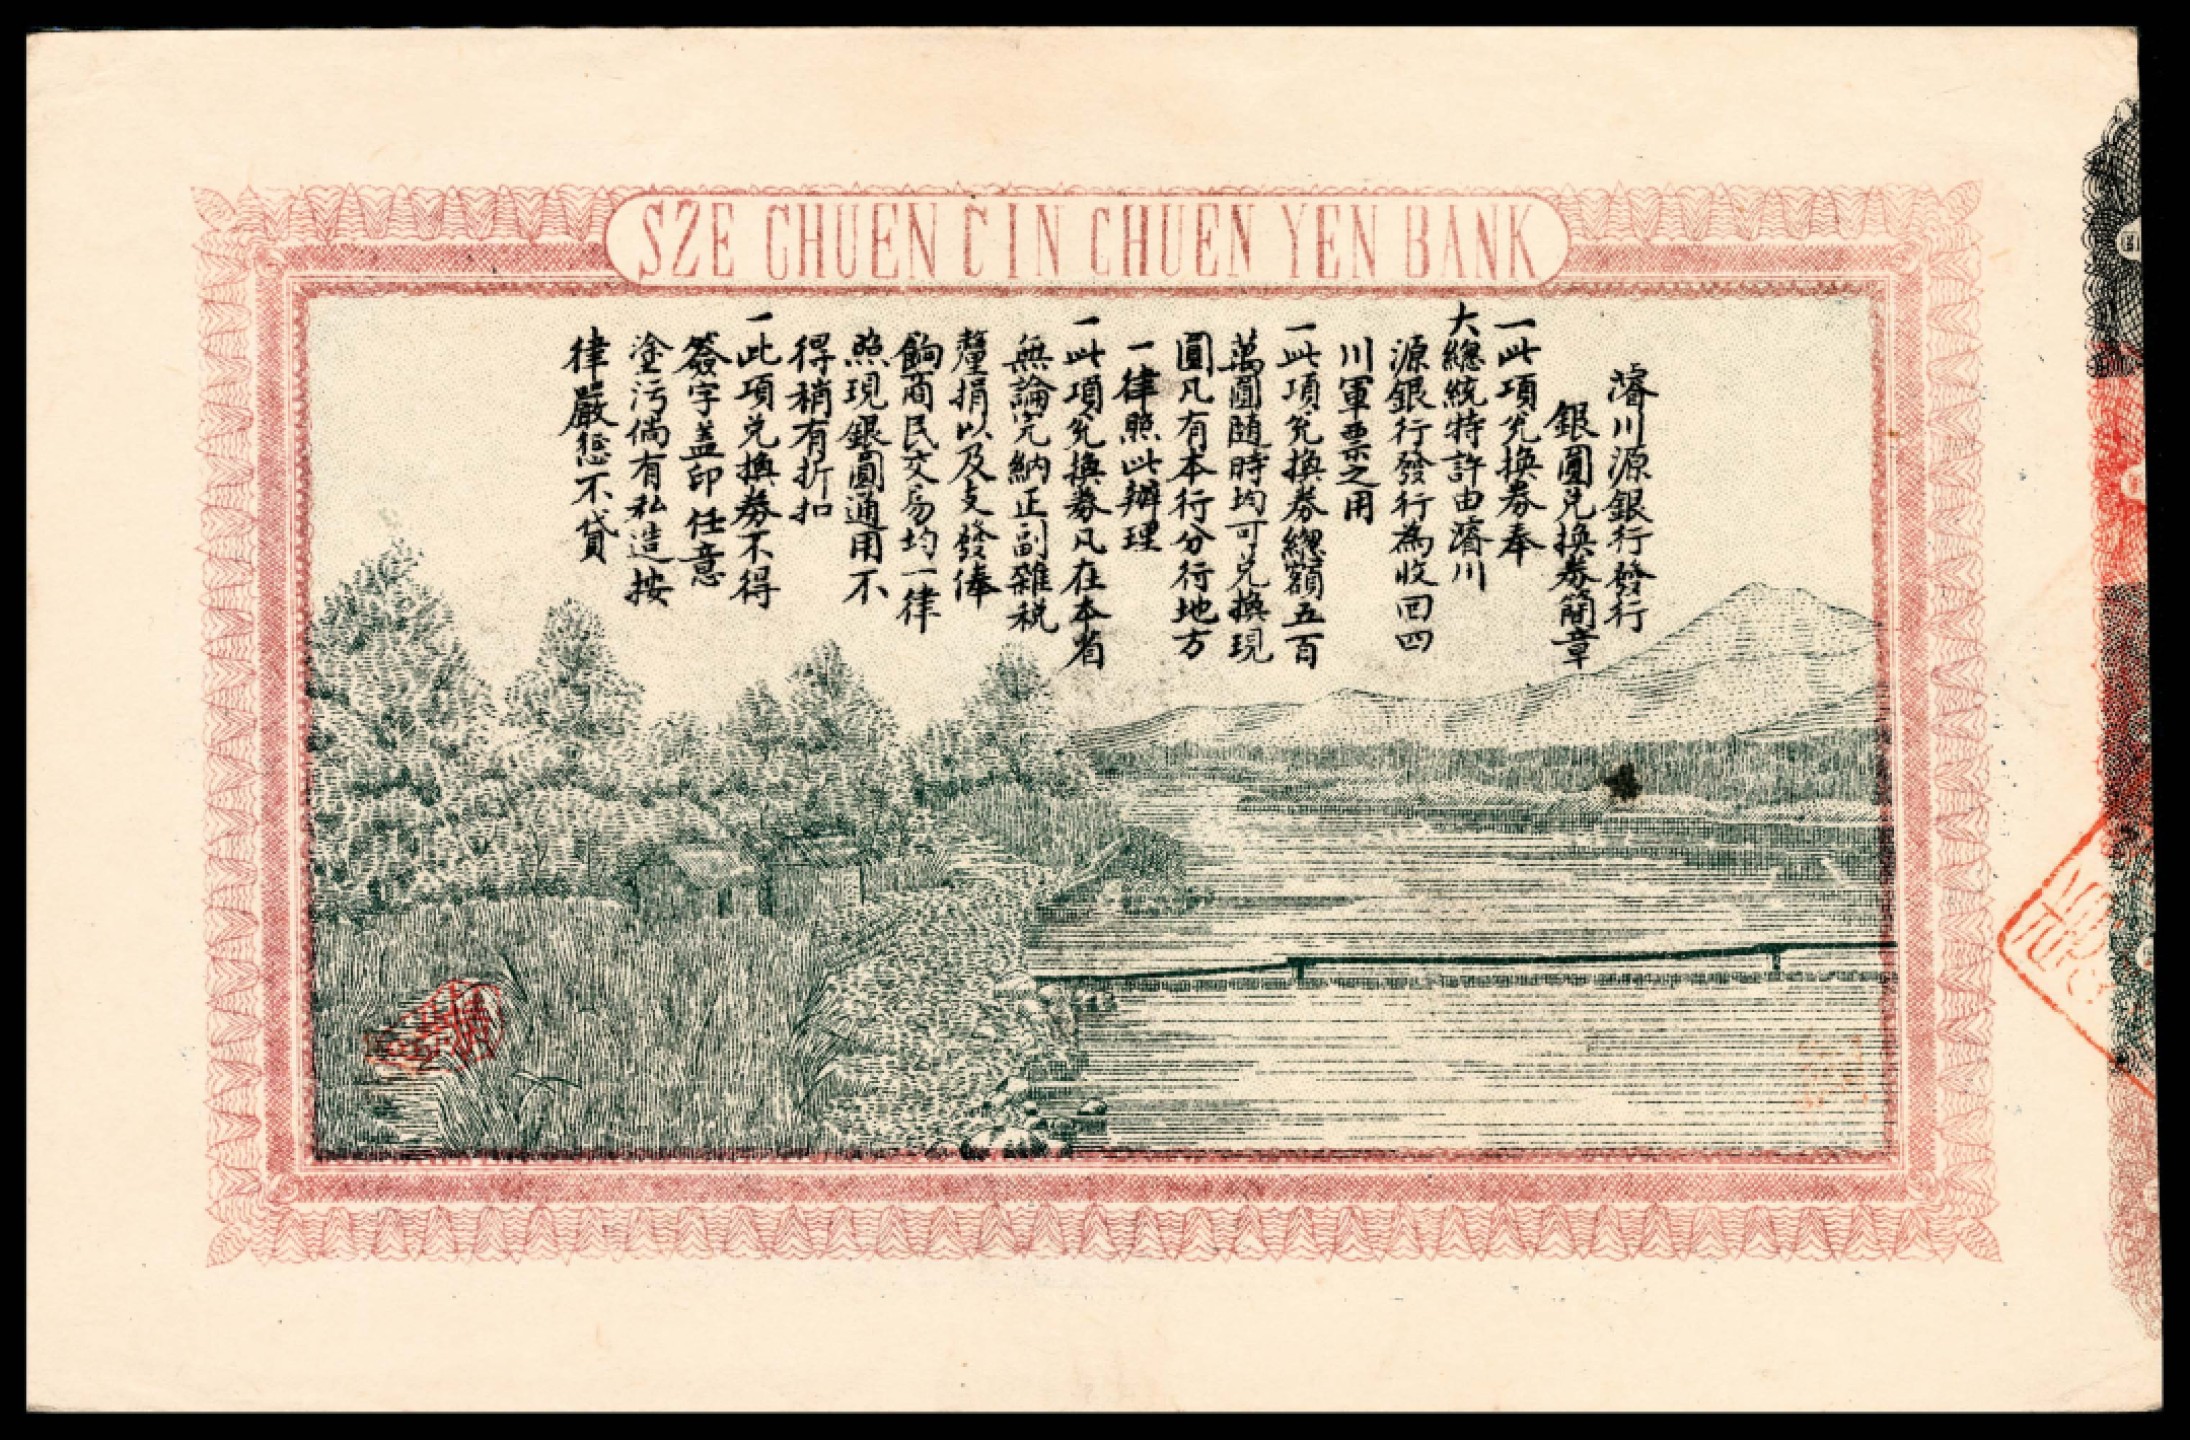 SZE CHUEN CIN CHUEN YEN BANK
濬川源銀行發行
銀圓兑換券簡章
一此項兑換券奉
大總統特許由濬川
源銀行發行為收回四
川軍票之用
一此項兑換券總額五百
萬圓随時均可兑換現
圓凡有本行分行地方
一律照此辦理
一此項兑換券凡在本省
無論完納正副雜税
釐捐以及支發俸
餉商民交易均一律
照現銀圓通用不
得稍有折扣
一此項兑換券不得
簽字盖印任意
塗污倘有私造按
律嚴懲不貸